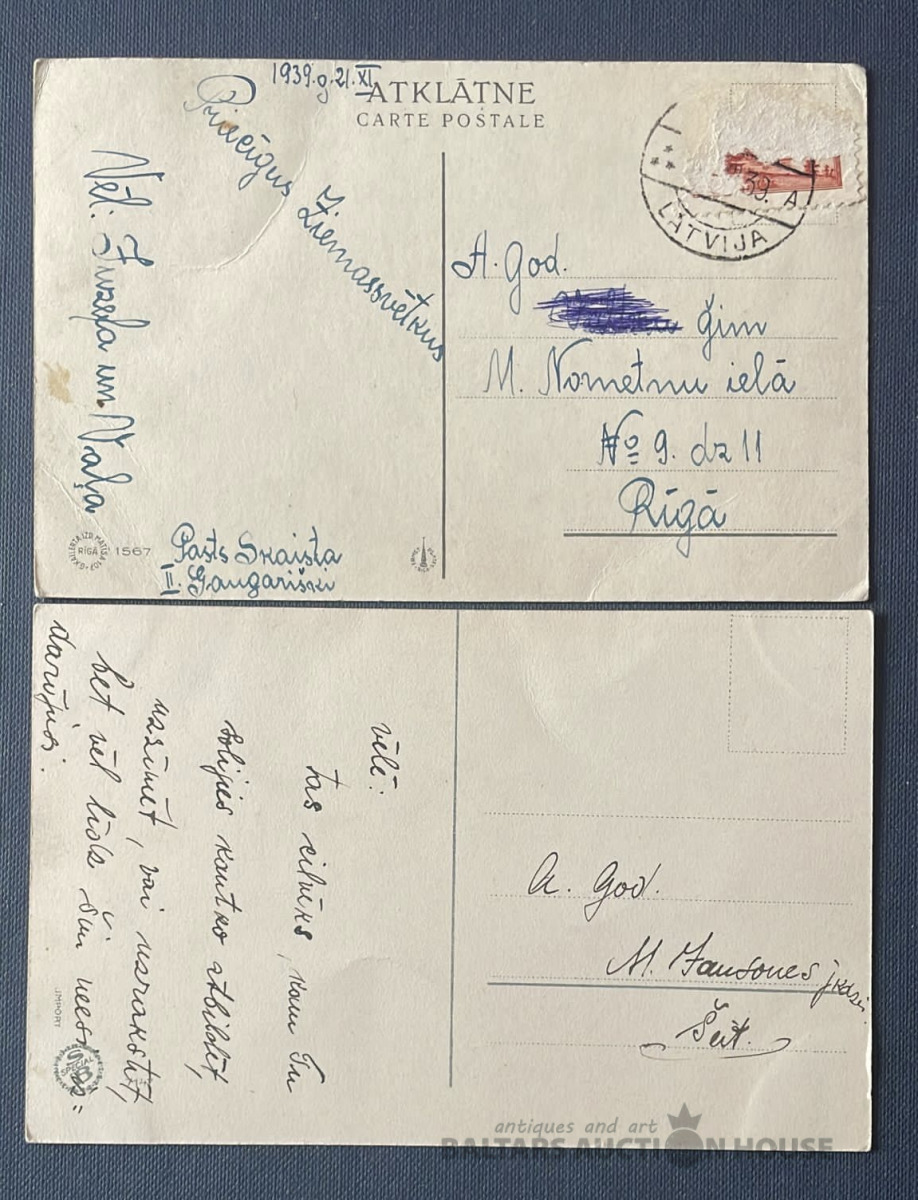 1939.g.21.XI
ATKLĀTNE
CARTE POSTALE
Priecīgus Ziemassvētkus
Vēl: Zuzeļa un Vaļa
39. A
LATVIJA
A. God.
ģim
M. Nometņu ielā
№ 9. dz 11
Rīgā
RĪGĀ
1567
Pasts Skaista
II. Gaugariški
vēlē:
tas cilvēks, kam Tu
solījies kautko atbildēt,
uzzīmēt, vai uzrakstīt,
bet vēl līdz šim neesi
darījusi.
IMPORT
SPECIAL
A. God.
M. Jansones jkdzei.
Šeit.
antiques and art
BALTARS AUCTION HOUSE